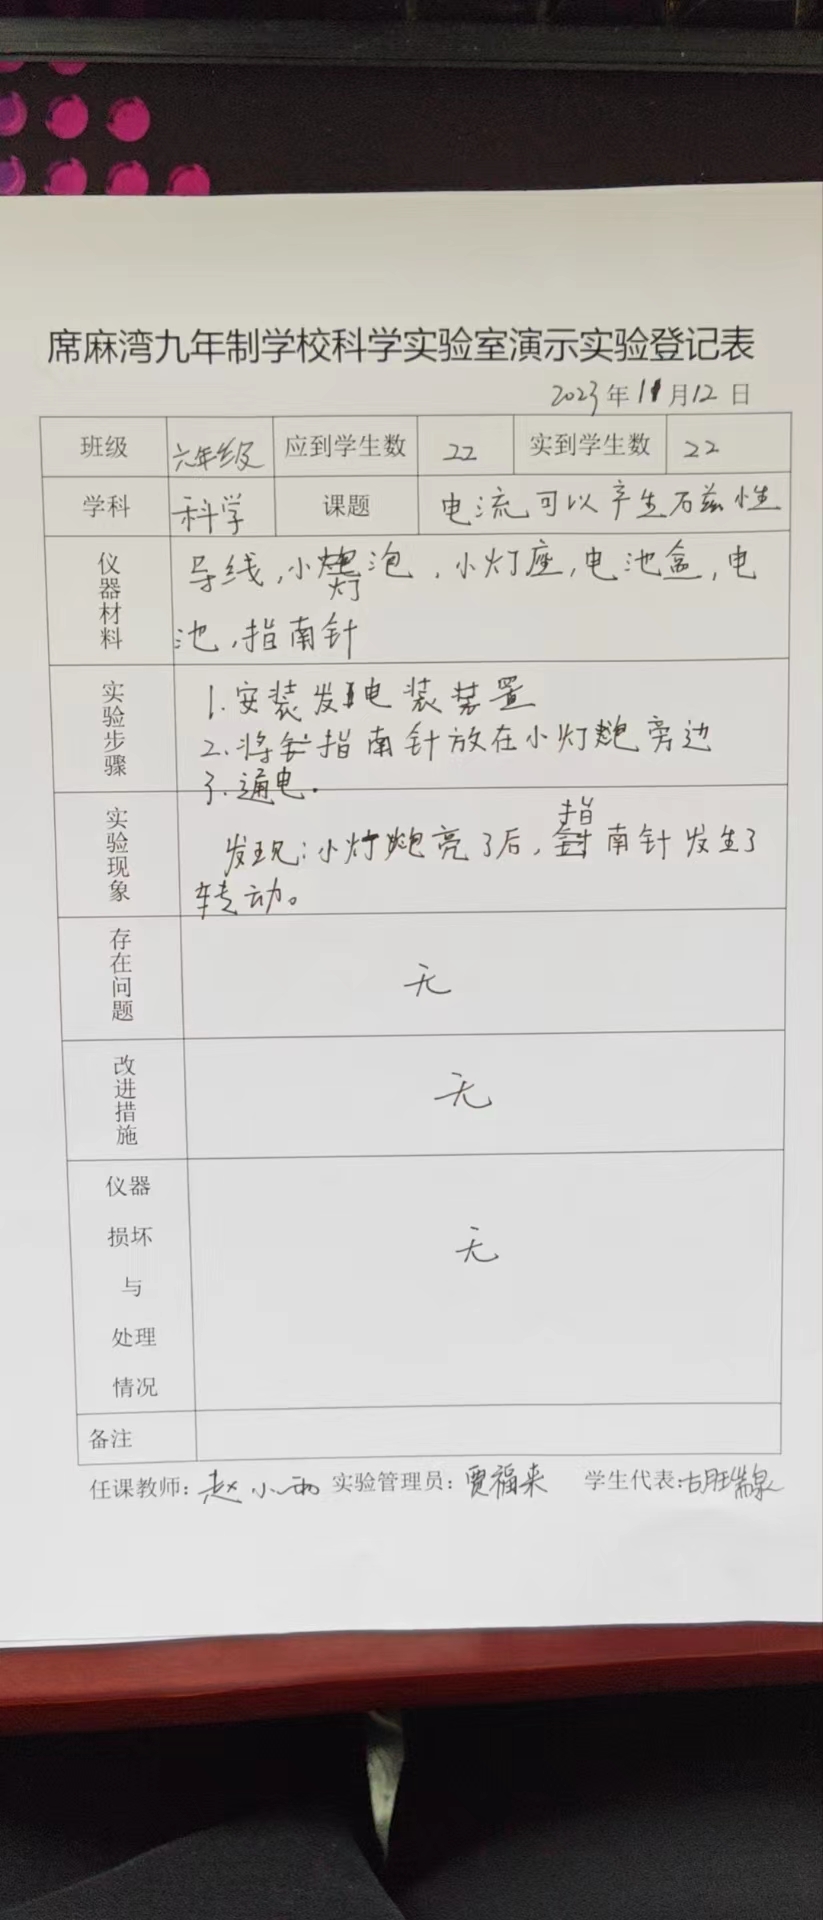 席麻湾九年制学校科学实验室演示实验登记表
2023年11月12日
班级 六年级 应到学生数 22 实到学生数 22
学科 科学 课题 电流可以产生磁性
仪器材料 导线,小灯泡,小灯座,电池盒,电
池,指南针
实验步骤 1.安装发电装置
2.将指南针放在小灯炮旁边
3.通电.
实验现象 发现:小灯炮亮了后,指南针发生了
转动。
存在问题 无
改进措施 无
仪器
损坏
与 无
处理
情况
备注
任课教师: 赵小雨 实验管理员: 贾福来 学生代表: 胡瑞泉